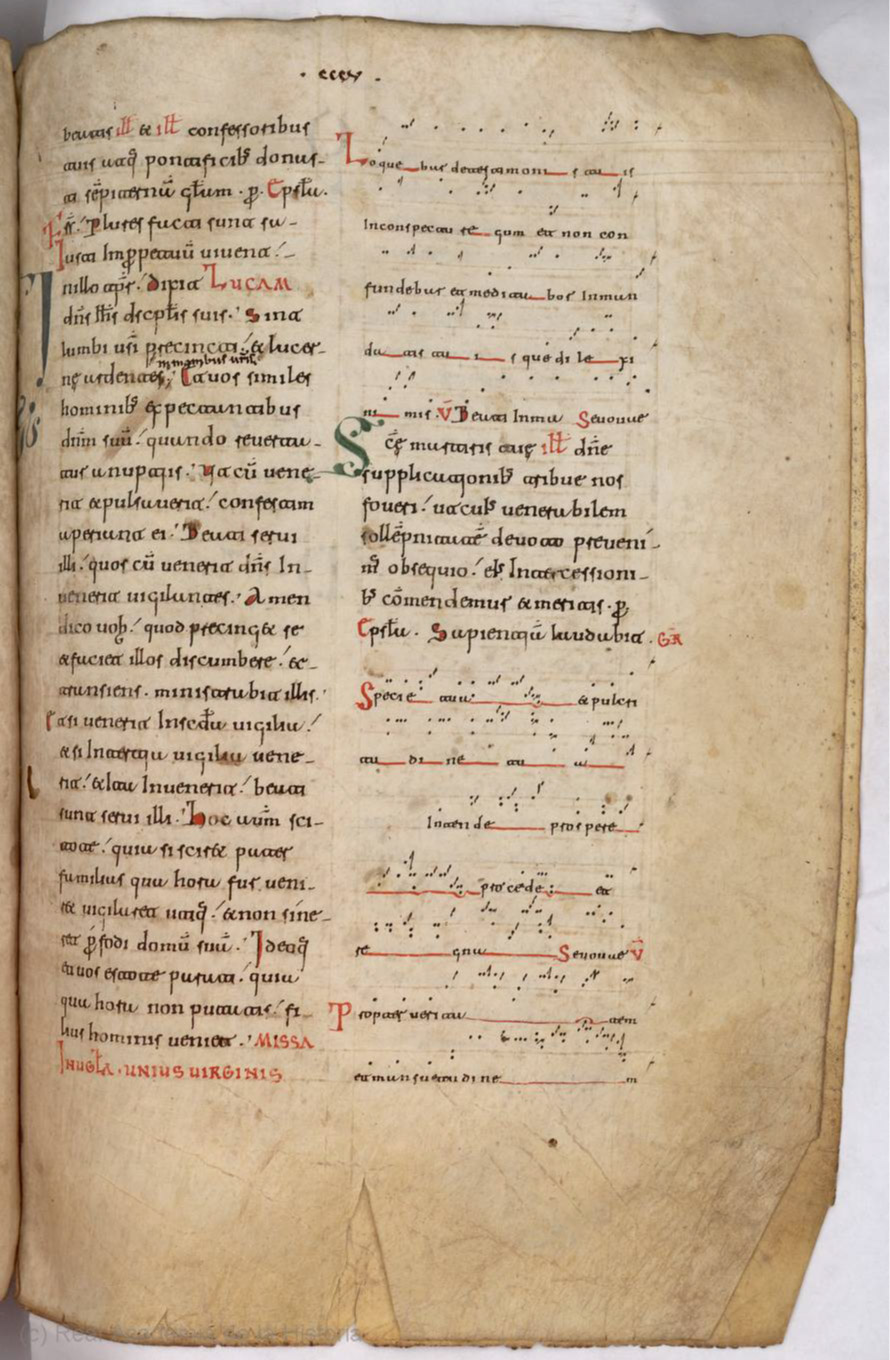 · cccv ·
beatis ill̅ & ill̅ confessoribus
atis uatq; pontificib; donas-
ti se̅piternu̅ · p̅ · Epsl̅a ·
Plures facti sunt su-
Iusti Imp̅petuu̅ uiuent
Jn illo tp̅r · dixit LUCAM
dn̅s ih̅s discip̅lis suis · Sint
lumbi ur̅i precincti & lucer-
in manibus ur̅is
ne ardentes · Et uos similes
hominib; expectantibus
dn̅m suu̅ quando reuerta-
tur a nuptiis · Vt cu̅ uene-
rit & pulsauerit confestim
aperiant ei · Beati serui
illi quos cu̅ uenerit dn̅s In-
uenerit uigilantes · Amen
dico uob̅ quod precing& se
& faciet illos discumbere & t-
ransiens · ministrabit illis ·
Et si uenerit In sc̅da uigilia
& si In tertia uigilia uene-
rit & ita Inuenerit beati
sunt serui illi · Hoc aut̅m sci-
tote quia si scir& pater
familias qua hora fur ueni-
r& uigilaret utiq; & non sine-
ret p̅fodi domu̅ sua̅ · Ideoq;
& uos estote parati quia
qua hora non putatis fi-
lius hominis ueniet · MISSA
IN UGL̅A · UNIUS UIRGINIS
Loque bar de testimoni s tu is
In conspectu re gum et non con
fundebar et medita bar In man
da tis tu i s que di le xi
ni mis · V̅ Beati Inma Seuouae
Sc̅e martiris tue ill̅ dn̅e
supplicationib; tribue nos
foueri ut cui; uenerabilem
solle̅pnitate̅ deuoto preueni-
m; obsequio ei; Intercessioni-
b; co̅mendemur & meritis · p̅
Epsl̅a · Sapientia̅ laudabit · GR
Specie tua & pulcri
tu di ne tu a
Inten de prospere
procede et
re gna Seuouae V̅
Propter ueritatem
et mansuetudine m